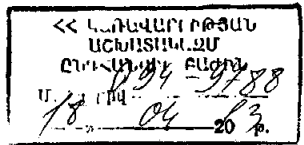 ՀՀ ԿԱՌԱՎԱՐՈՒԹՅԱՆ
ԱՇԽԱՏԱԿԱԶՄ
ԸՆԴՀԱՆՈՒՐ ԲԱԺԻՆ
Մ. 94-9788
18 04 20 թ.